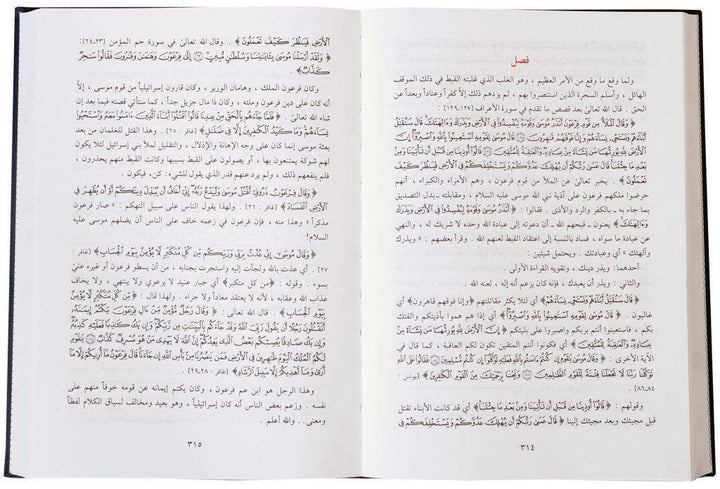 فصل
ولما وقع ما وقع من الأمر العظيم ، وهو الغلب الذي غلبته القبط في ذلك الموقف
الهائل ، وأسلم السحرة الذين استنصروا بهم ، لم يزدهم ذلك إلا كفراً وعناداً وبعداً عن
الحق . قال الله تعالى بعد قصص ما تقدم في سورة الأعراف (١٢٧-١٢٩) :
﴿ وَقَالَ الْمَلَأُ مِن قَوْمِ فِرْعَوْنَ أَتَذَرُ مُوسَىٰ وَقَوْمَهُ لِيُفْسِدُوا فِي الْأَرْضِ وَيَذَرَكَ وَآلِهَتَكَ قَالَ سَنُقَتِّلُ
أَبْنَاءَهُمْ وَنَسْتَحْيِي نِسَاءَهُمْ وَإِنَّا فَوْقَهُمْ قَاهِرُونَ قَالَ مُوسَىٰ لِقَوْمِهِ اسْتَعِينُوا بِاللَّهِ وَاصْبِرُوا إِنَّ
الْأَرْضَ لِلَّهِ يُورِثُهَا مَن يَشَاءُ مِنْ عِبَادِهِ وَالْعَاقِبَةُ لِلْمُتَّقِينَ قَالُوا أُوذِينَا مِن قَبْلِ أَن تَأْتِيَنَا وَمِن
بَعْدِ مَا جِئْتَنَا قَالَ عَسَىٰ رَبُّكُمْ أَن يُهْلِكَ عَدُوَّكُمْ وَيَسْتَخْلِفَكُمْ فِي الْأَرْضِ فَيَنظُرَ كَيْفَ
تَعْمَلُونَ ﴾ . يخبر تعالى عن الملأ من قوم فرعون ، وهم الأمراء والكبراء ، أنهم
حرضوا ملكهم فرعون على أذية نبي الله موسى عليه السلام ، ومقابلته . بدل التصديق
بما جاء به ـ بالكفر والرد والأذى . قالوا : ﴿ أَتَذَرُ مُوسَىٰ وَقَوْمَهُ لِيُفْسِدُوا فِي الْأَرْضِ وَيَذَرَكَ
وَآلِهَتَكَ ﴾ يعنون ، قبحهم الله ، أن دعوته إلى عبادة الله وحده لا شريك له ، والنهي عن
عبادة ما سواه ، فساد بالنسبة إلى اعتقاد القبط لعنهم الله . وقرأ بعضهم : « ويذرك
وآلهتك » أي وعبادتك . ويحتمل شيئين :
أحدهما : ويذر دينك . وتقويه القراءة الأولى .
والثاني : ويذر أن يعبدك ، فإنه كان يزعم أنه إله ، لعنه الله .
﴿ قَالَ سَنُقَتِّلُ أَبْنَاءَهُمْ وَنَسْتَحْيِي نِسَاءَهُمْ ﴾ أي لئلا يكثر مقاتلتهم ﴿ وَإِنَّا فَوْقَهُمْ قَاهِرُونَ ﴾ أي
غالبون . ﴿ قَالَ مُوسَىٰ لِقَوْمِهِ اسْتَعِينُوا بِاللَّهِ وَاصْبِرُوا إِنَّ الْأَرْضَ لِلَّهِ يُورِثُهَا مَن يَشَاءُ مِنْ
عِبَادِهِ وَالْعَاقِبَةُ لِلْمُتَّقِينَ ﴾ أي إذا هم هموا بأذيتكم والفتك
بكم ، فاستعينوا أنتم بربكم واصبروا على بليتكم
أي فكونوا أنتم المتقين لتكون لكم العاقبة ، كما قال في
الآية الأخرى : ﴿ وَقَالَ مُوسَىٰ يَا قَوْمِ إِن كُنتُمْ آمَنتُم بِاللَّهِ فَعَلَيْهِ تَوَكَّلُوا إِن كُنتُم مُّسْلِمِينَ فَقَالُوا عَلَى اللَّهِ
تَوَكَّلْنَا رَبَّنَا لَا تَجْعَلْنَا فِتْنَةً لِّلْقَوْمِ الظَّالِمِينَ وَنَجِّنَا بِرَحْمَتِكَ مِنَ الْقَوْمِ الْكَافِرِينَ ﴾ [يونس :
٨٤ـ٨٦] .
وقولهم : ﴿ قَالُوا أُوذِينَا مِن قَبْلِ أَن تَأْتِيَنَا وَمِن بَعْدِ مَا جِئْتَنَا ﴾ أي قد كانت الأبناء تقتل
قبل مجيئك وبعد مجيئك إلينا ﴿ قَالَ عَسَىٰ رَبُّكُمْ أَن يُهْلِكَ عَدُوَّكُمْ وَيَسْتَخْلِفَكُمْ فِي
٣١٤
الْأَرْضِ فَيَنظُرَ كَيْفَ تَعْمَلُونَ ﴾ . وقال الله تعالى في سورة حم المؤمن (٢٣ـ٢٤) :
﴿ وَلَقَدْ أَرْسَلْنَا مُوسَىٰ بِآيَاتِنَا وَسُلْطَانٍ مُّبِينٍ إِلَىٰ فِرْعَوْنَ وَهَامَانَ وَقَارُونَ فَقَالُوا سَاحِرٌ
كَذَّابٌ ﴾ .
وكان فرعون الملك ، وهامان الوزير ، وكان قارون إسرائيلياً من قوم موسى ، إلا
أنه كان على دين فرعون وملئه ، وكان ذا مال جزيل جداً ، كما ستأتي قصته فيما بعد إن
شاء الله تعالى . ﴿ فَلَمَّا جَاءَهُم بِالْحَقِّ مِنْ عِندِنَا قَالُوا اقْتُلُوا أَبْنَاءَ الَّذِينَ آمَنُوا مَعَهُ وَاسْتَحْيُوا
نِسَاءَهُمْ وَمَا كَيْدُ الْكَافِرِينَ إِلَّا فِي ضَلَالٍ ﴾ [غافر : ٢٥] . وهذا القتل للغلمان من بعد
بعثة موسى إنما كان على وجه الإهانة والإذلال ، والتقليل لملأ بني إسرائيل لئلا يكون
لهم شوكة يمتنعون بها ، أو يصولون على القبط بسببها وكانت القبط منهم يحذرون ،
فلم ينفعهم ذلك ، ولم يرد عنهم قدر الذي يقول للشيء : كن ، فيكون .
﴿ وَقَالَ فِرْعَوْنُ ذَرُونِي أَقْتُلْ مُوسَىٰ وَلْيَدْعُ رَبَّهُ إِنِّي أَخَافُ أَن يُبَدِّلَ دِينَكُمْ أَوْ أَن يُظْهِرَ فِي
الْأَرْضِ الْفَسَادَ ﴾ [غافر : ٢٦] . ولهذا يقول الناس على سبيل التهكم : « صار فرعون
مذكراً » وهذا منه ، فإن فرعون في زعمه خاف على الناس أن يضلهم موسى عليه
السلام!
﴿ وَقَالَ مُوسَىٰ إِنِّي عُذْتُ بِرَبِّي وَرَبِّكُم مِّن كُلِّ مُتَكَبِّرٍ لَّا يُؤْمِنُ بِيَوْمِ الْحِسَابِ ﴾ [غافر :
٢٧] . أي عذت بالله ولجأت إليه واستجرت بجنابه ، من أن يسطو فرعون أو غيره عليّ
بسوء . وقوله : ﴿ مِّن كُلِّ مُتَكَبِّرٍ ﴾ أي جبار عنيد لا يرعوي ولا ينتهي ، ولا يخاف
عذاب الله وعقابه ، لأنه لا يعتقد معاداً ولا جزاء . ولهذا قال : ﴿ مِّن كُلِّ مُتَكَبِّرٍ لَّا يُؤْمِنُ
بِيَوْمِ الْحِسَابِ ﴾ . ﴿ وَقَالَ رَجُلٌ مُّؤْمِنٌ مِّنْ آلِ فِرْعَوْنَ يَكْتُمُ إِيمَانَهُ
أَتَقْتُلُونَ رَجُلًا أَن يَقُولَ رَبِّيَ اللَّهُ وَقَدْ جَاءَكُم بِالْبَيِّنَاتِ مِن رَّبِّكُمْ وَإِن يَكُ كَاذِبًا فَعَلَيْهِ كَذِبُهُ
وَإِن يَكُ صَادِقًا يُصِبْكُم بَعْضُ الَّذِي يَعِدُكُمْ إِنَّ اللَّهَ لَا يَهْدِي مَنْ هُوَ مُسْرِفٌ كَذَّابٌ يَا قَوْمِ
لَكُمُ الْمُلْكُ الْيَوْمَ ظَاهِرِينَ فِي الْأَرْضِ فَمَن يَنصُرُنَا مِن بَأْسِ اللَّهِ إِن جَاءَنَا قَالَ فِرْعَوْنُ مَا أُرِيكُمْ إِلَّا مَا
أَرَىٰ وَمَا أَهْدِيكُمْ إِلَّا سَبِيلَ الرَّشَادِ ﴾ [غافر : ٢٨ـ٢٩] .
وهذا الرجل هو ابن عم فرعون ، وكان يكتم إيمانه عن قومه خوفاً منهم على
نفسه . وزعم بعض الناس أنه كان إسرائيلياً ، وهو بعيد ومخالف لسياق الكلام لفظاً
ومعنى... والله أعلم .
٣١٥